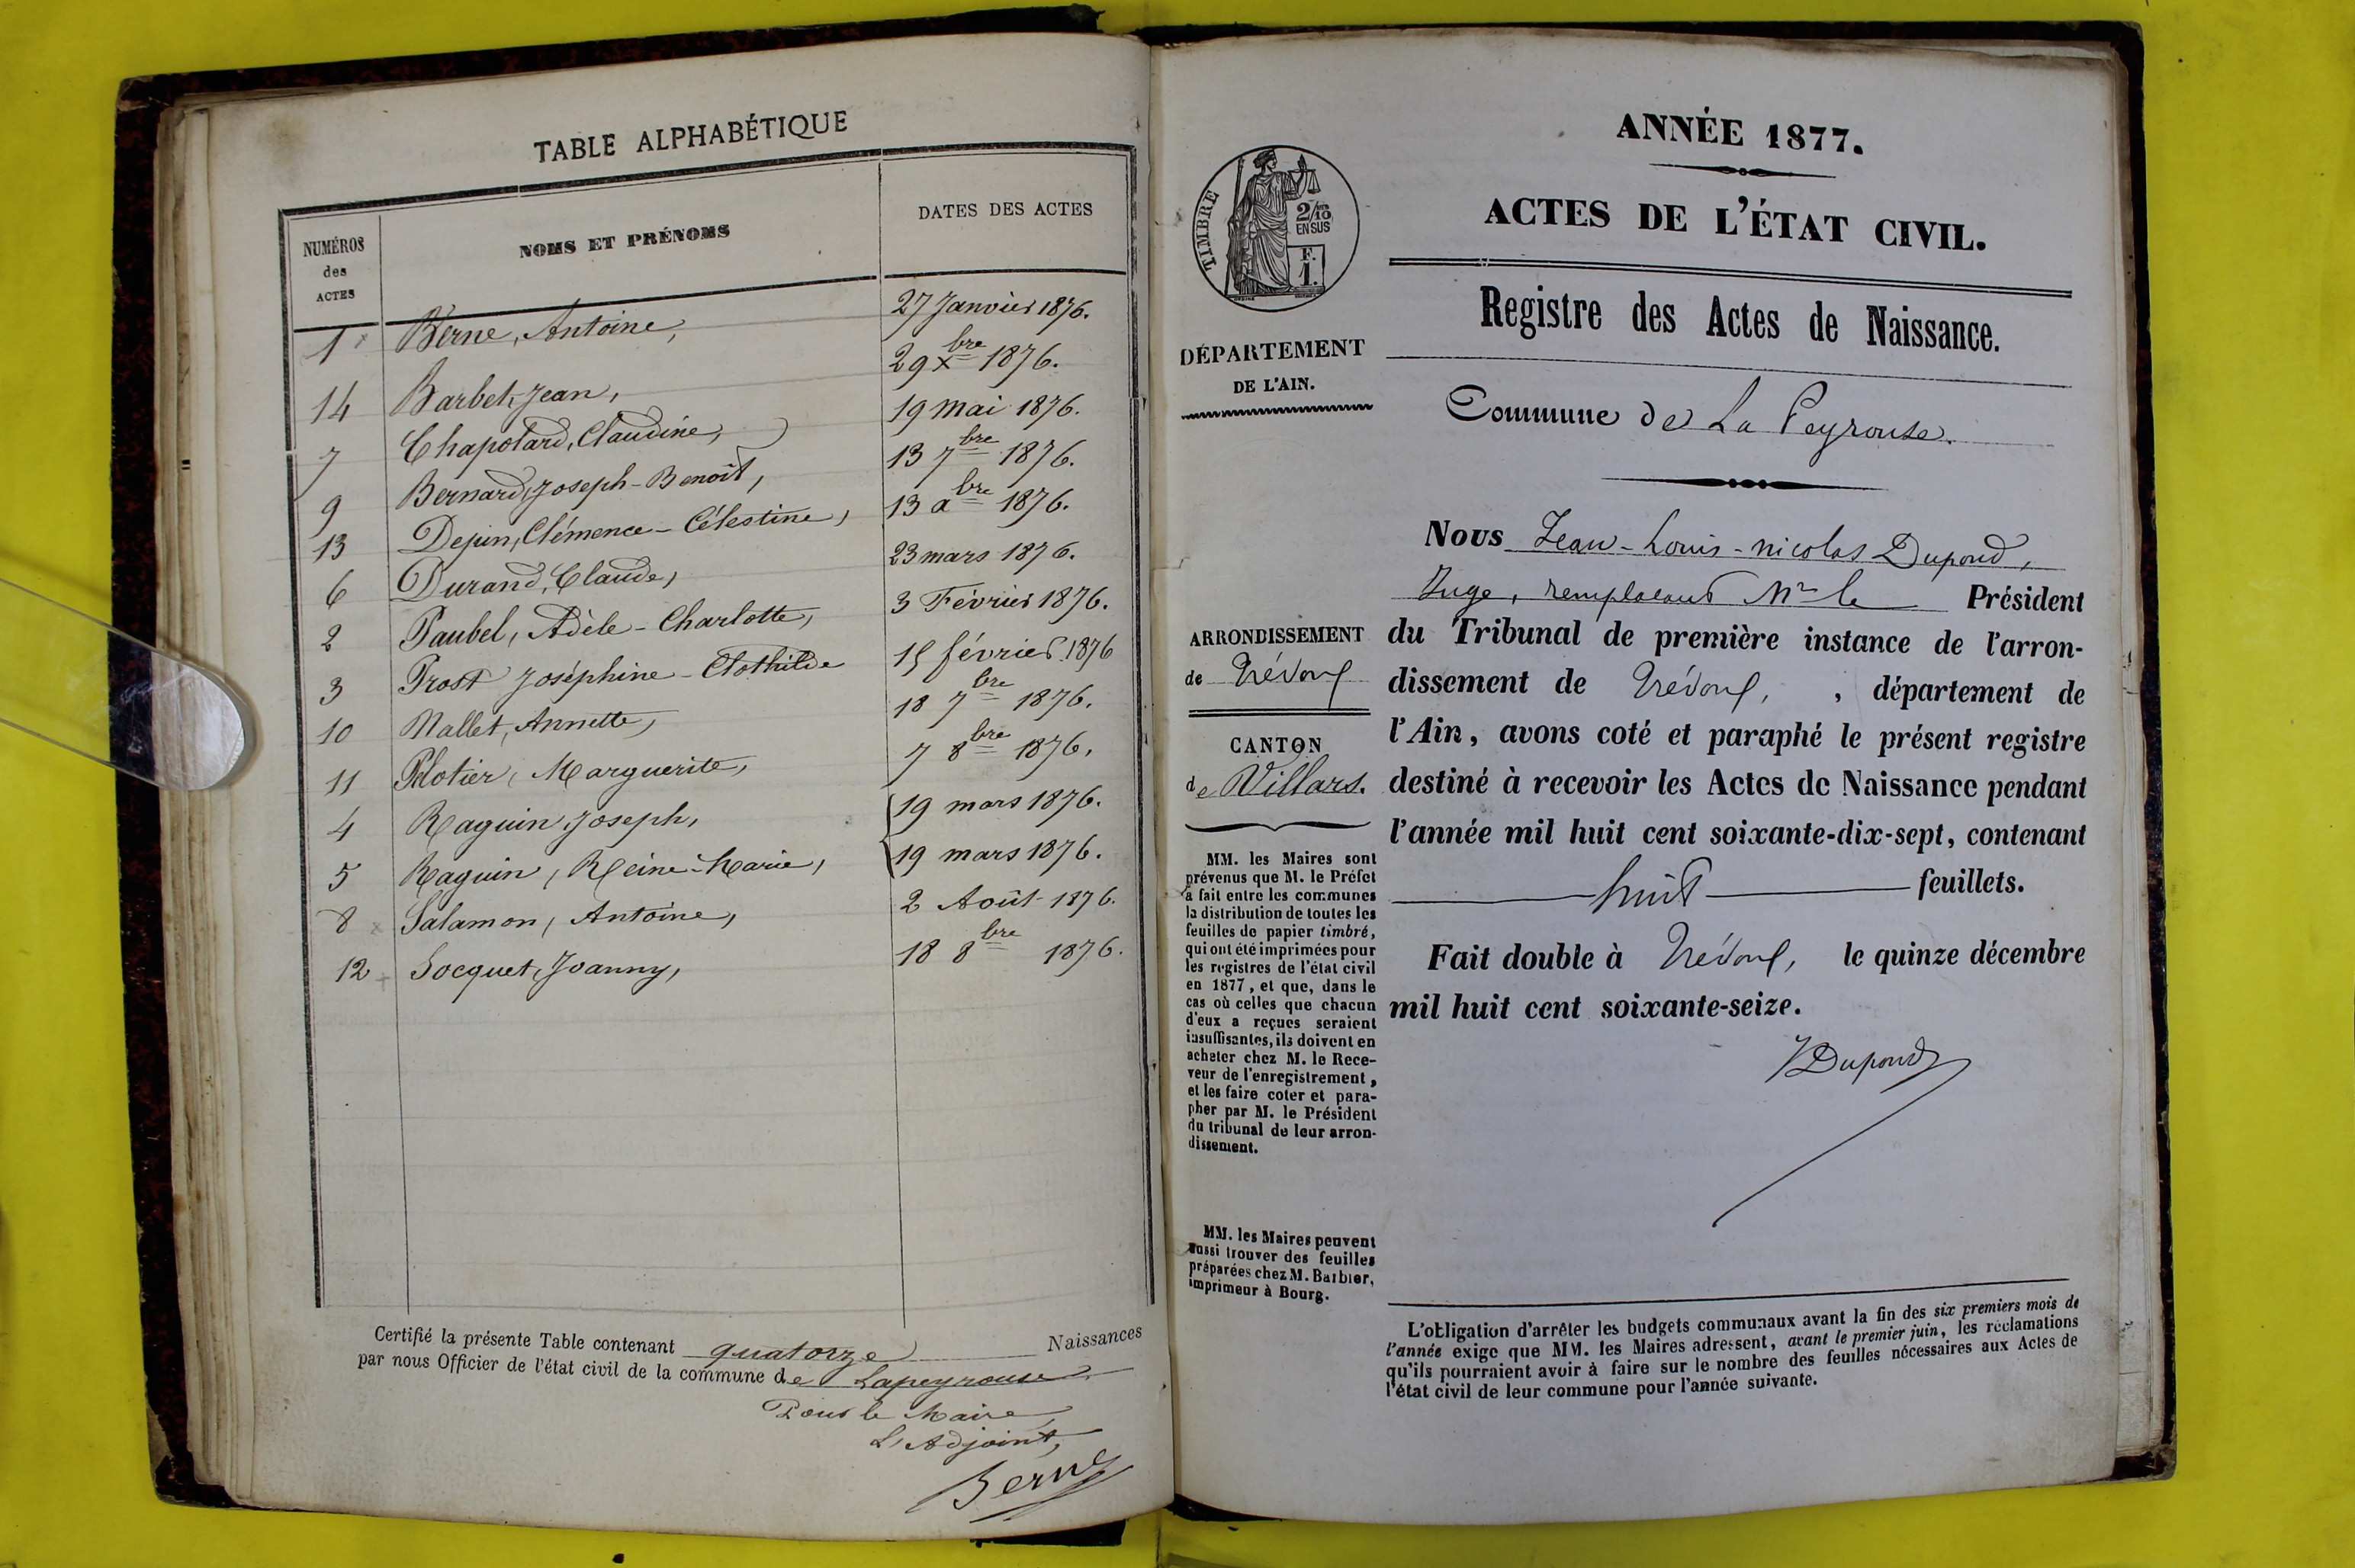 TABLE ALPHABÉTIQUE
NUMÉROS des ACTES NOMS ET PRÉNOMS DATES DES ACTES
1 Berne, Antoine, 27 Janvier 1876.
14 Barbet, Jean, 29 Xbre 1876.
7 Chapolard, Claudine, 19 mai 1876.
9 Bernard, Joseph-Benoît, 13 7bre 1876.
13 Dejun, Clémence-Célestine, 13 abre 1876.
6 Durand, Claude, 23 mars 1876.
2 Paubel, Adèle-Charlotte, 3 Février 1876.
3 Prost Joséphine-Clothilde 15 février 1876
10 Mallet, Annette, 18 7bre 1876.
11 Pelotier, Marguerite, 7 8bre 1876.
4 Raguin, Joseph, 19 mars 1876.
5 Raguin, Reine-Marie, 19 mars 1876.
8 Salamon, Antoine, 2 Août 1876.
12 Socquet, Joanny, 18 8bre 1876.
Certifié la présente Table contenant quatorze Naissances
par nous Officier de l'état civil de la commune de Lapeyrouse
Pour le Maire,
L'Adjoint,
Berne
TIMBRE
2/10
EN SUS
F.
1.
DÉPARTEMENT
DE L'AIN.
ARRONDISSEMENT
de Trévoux
CANTON
de Villars.
MM. les Maires sont
prévenus que M. le Préfet
a fait entre les communes
la distribution de toutes les
feuilles de papier timbré,
qui ont été imprimées pour
les registres de l'état civil
en 1877, et que, dans le
cas où celles que chacun
d'eux a reçues seraient
insuffisantes, ils doivent en
acheter chez M. le Rece-
veur de l'enregistrement,
et les faire coter et para-
pher par M. le Président
du tribunal de leur arron-
dissement.
MM. les Maires peuvent
aussi trouver des feuilles
préparées chez M. Barbier,
imprimeur à Bourg.
ANNÉE 1877.
ACTES DE L'ÉTAT CIVIL.
Registre des Actes de Naissance.
Commune de La Peyrouse.
Nous Jean-Louis-nicolas Dupond,
Juge, remplaçant Mr le Président
du Tribunal de première instance de l'arron-
dissement de Trévoux, , département de
l'Ain, avons coté et paraphé le présent registre
destiné à recevoir les Actes de Naissance pendant
l'année mil huit cent soixante-dix-sept, contenant
huit feuillets.
Fait double à Trévoux, le quinze décembre
mil huit cent soixante-seize.
Dupond
L'obligation d'arrêter les budgets communaux avant la fin des six premiers mois de
l'année exige que MM. les Maires adressent, avant le premier juin, les réclamations
qu'ils pourraient avoir à faire sur le nombre des feuilles nécessaires aux Actes de
l'état civil de leur commune pour l'année suivante.